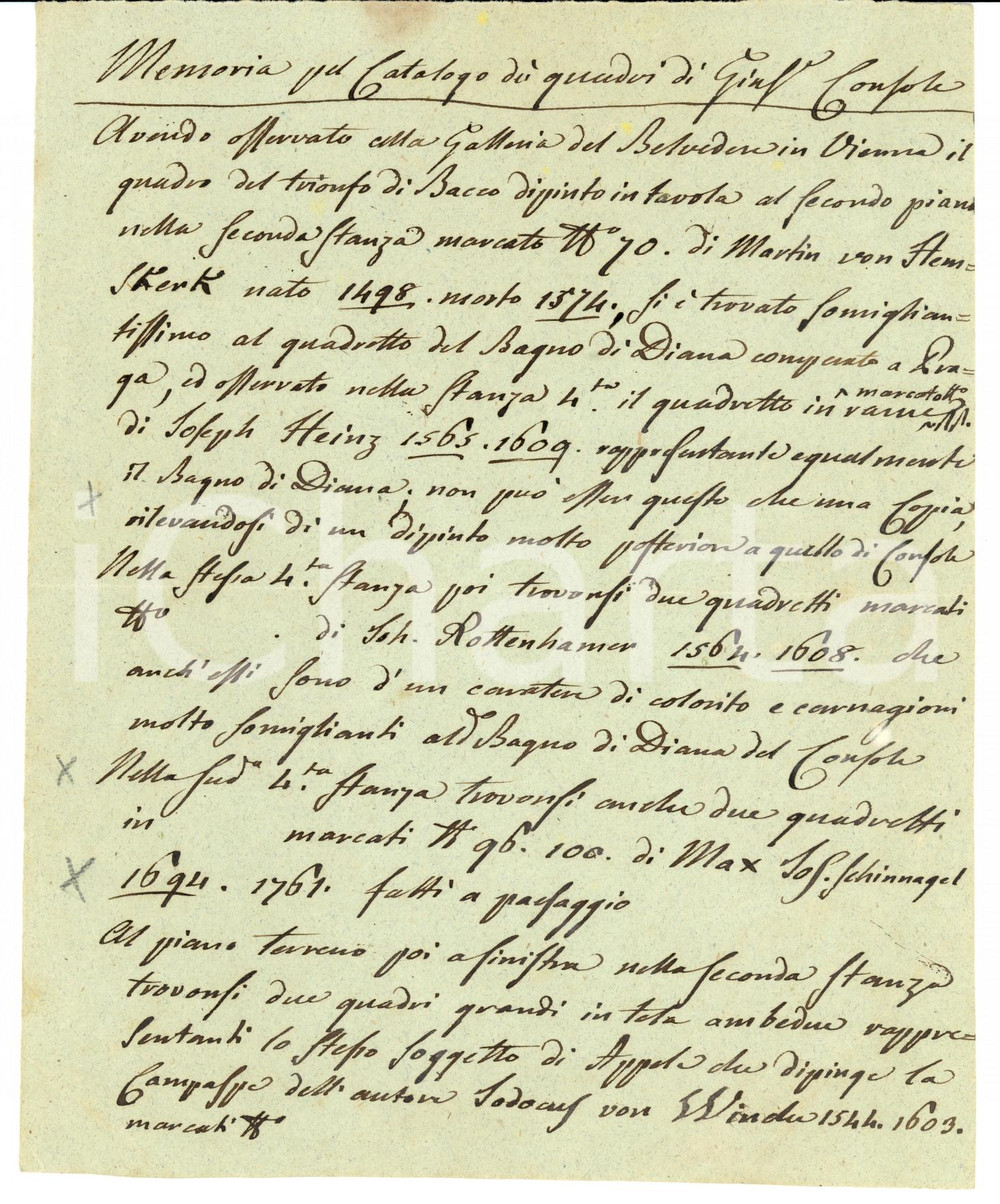 Memoria pel Catalogo dei quadri di Gius.e Console
Avendo osservato alla Galleria del Belvedere in Vienna il
quadro del trionfo di Bacco dipinto in tavola al secondo piano
nella seconda stanza marcato No 70. di Martin von Hem=
skerk nato 1498. morto 1574., si è trovato somiglian=
tissimo al quadretto del Bagno di Diana comperato a Pra=
ga, ed osservato nella stanza 4.ta il quadretto in rame marcato No
di Joseph Heinz 1565. 1609. rappresentante egualmente
il Bagno di Diana; non può esser questo che una Copia,
rilevandosi di un dipinto molto posteriore a quello di Console
Nella stessa 4.ta stanza poi trovonsi due quadretti marcati
No . di Joh. Rottenhamer 1564. 1608. che
anch'essi sono d'un caratere di colorito e carnagioni
molto somiglianti al Bagno di Diana del Console
Nella sud.a 4.ta stanza trovonsi anche due quadretti
in marcati No 96. 100. di Max Jos. Schinnagel
1694. 1761. fatti a paesaggio
Al piano terreno poi a sinistra nella seconda stanza
trovonsi due quadri grandi in tela ambedue rappre=
sentanti lo stesso soggetto di Appele che dipinge la
Campaspe dell'autore Jodocus von Winche 1544. 1603.
marcati No
iCharta